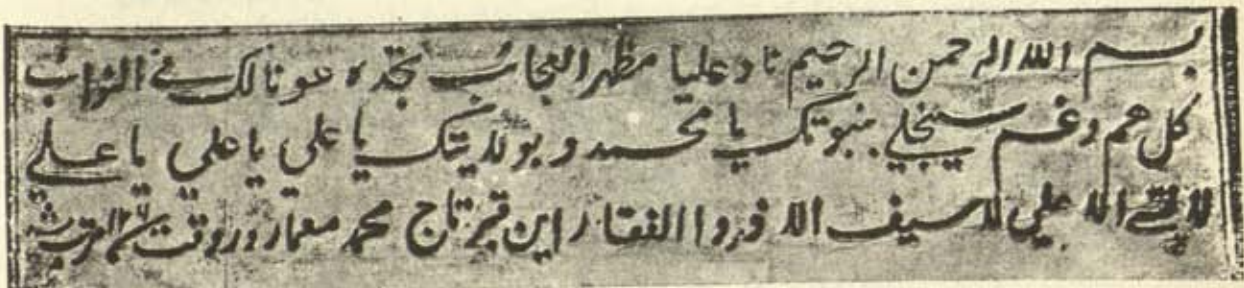 بسم الله الرحمن الرحيم ناد عليا مظهر العجائب تجده عونا لك في النوائب
كل هم وغم سينجلي بنبوتك يا محمد و بولايتك يا علي يا علي يا علي
لا فتى الا علي لا سيف الا ذو الفقار اين قبر تاج محمد معمار در وقت